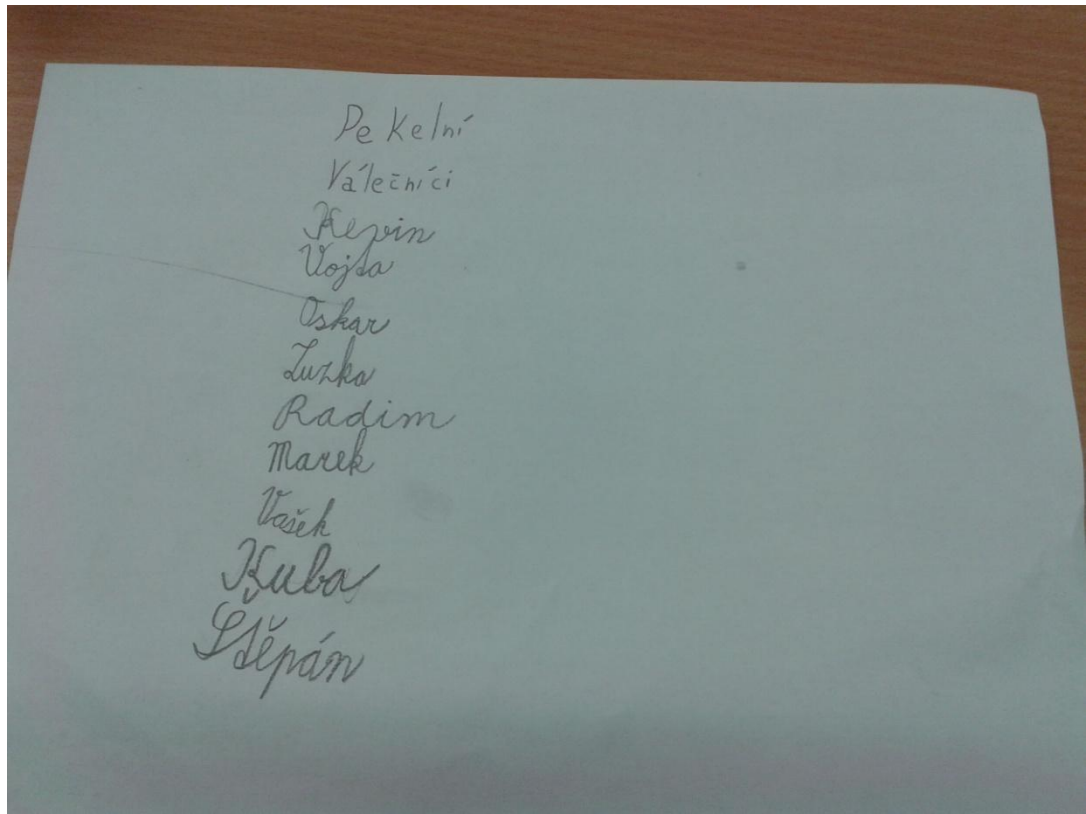 Pekelní
Válečníci
Kevin
Vojta
Oskar
Zuzka
Radim
Marek
Vašek
Kuba
Štěpán